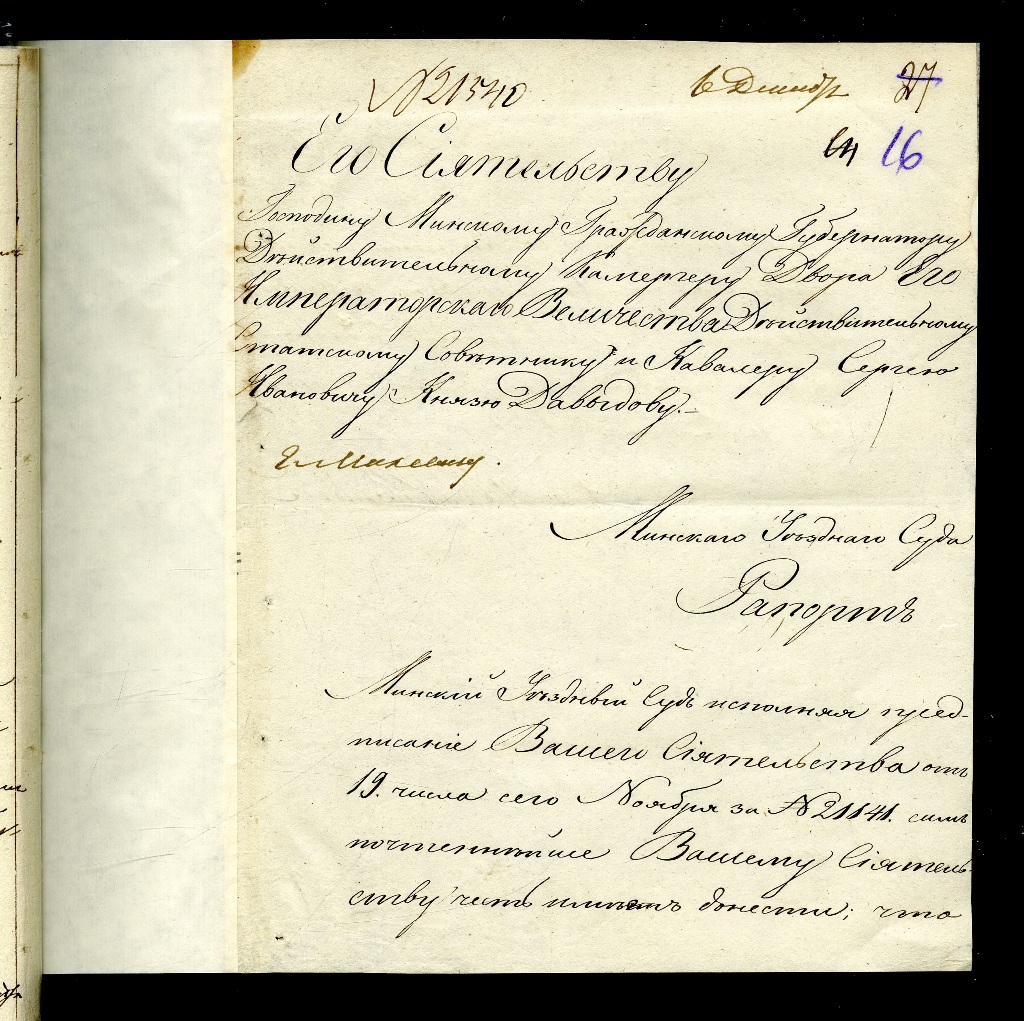 № 21540
6 Декабр 27
16
Его Сіятельству
Господину Минскому Гражданскому Губернатору
Дѣйствительному Камергеру Двора Его
Императорскаго Величества Дѣйствительному
Статскому Совѣтнику и Кавалеру Сергею
Ивановичу Князю Давыдову.
Минскаго Уѣзднаго Суда
Рапортъ
Минскій Уѣздный Судъ исполняя пред-
писаніе Вашего Сіятельства отъ
19. числа сего Ноября за № 21141. симъ
почтеннѣйше Вашему Сіятель-
ству честь имѣетъ донести; что